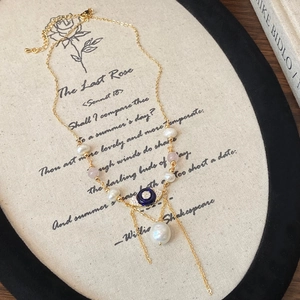 The Last Rose
<Sonnet 18>
Shall I compare thee
to a summer's day?
Thou art more lovely and more temperate.
Rough winds do shake
the darling buds of May,
And summer's lease hath too short a date.
—William Shakespeare
MAKE
BIDLO